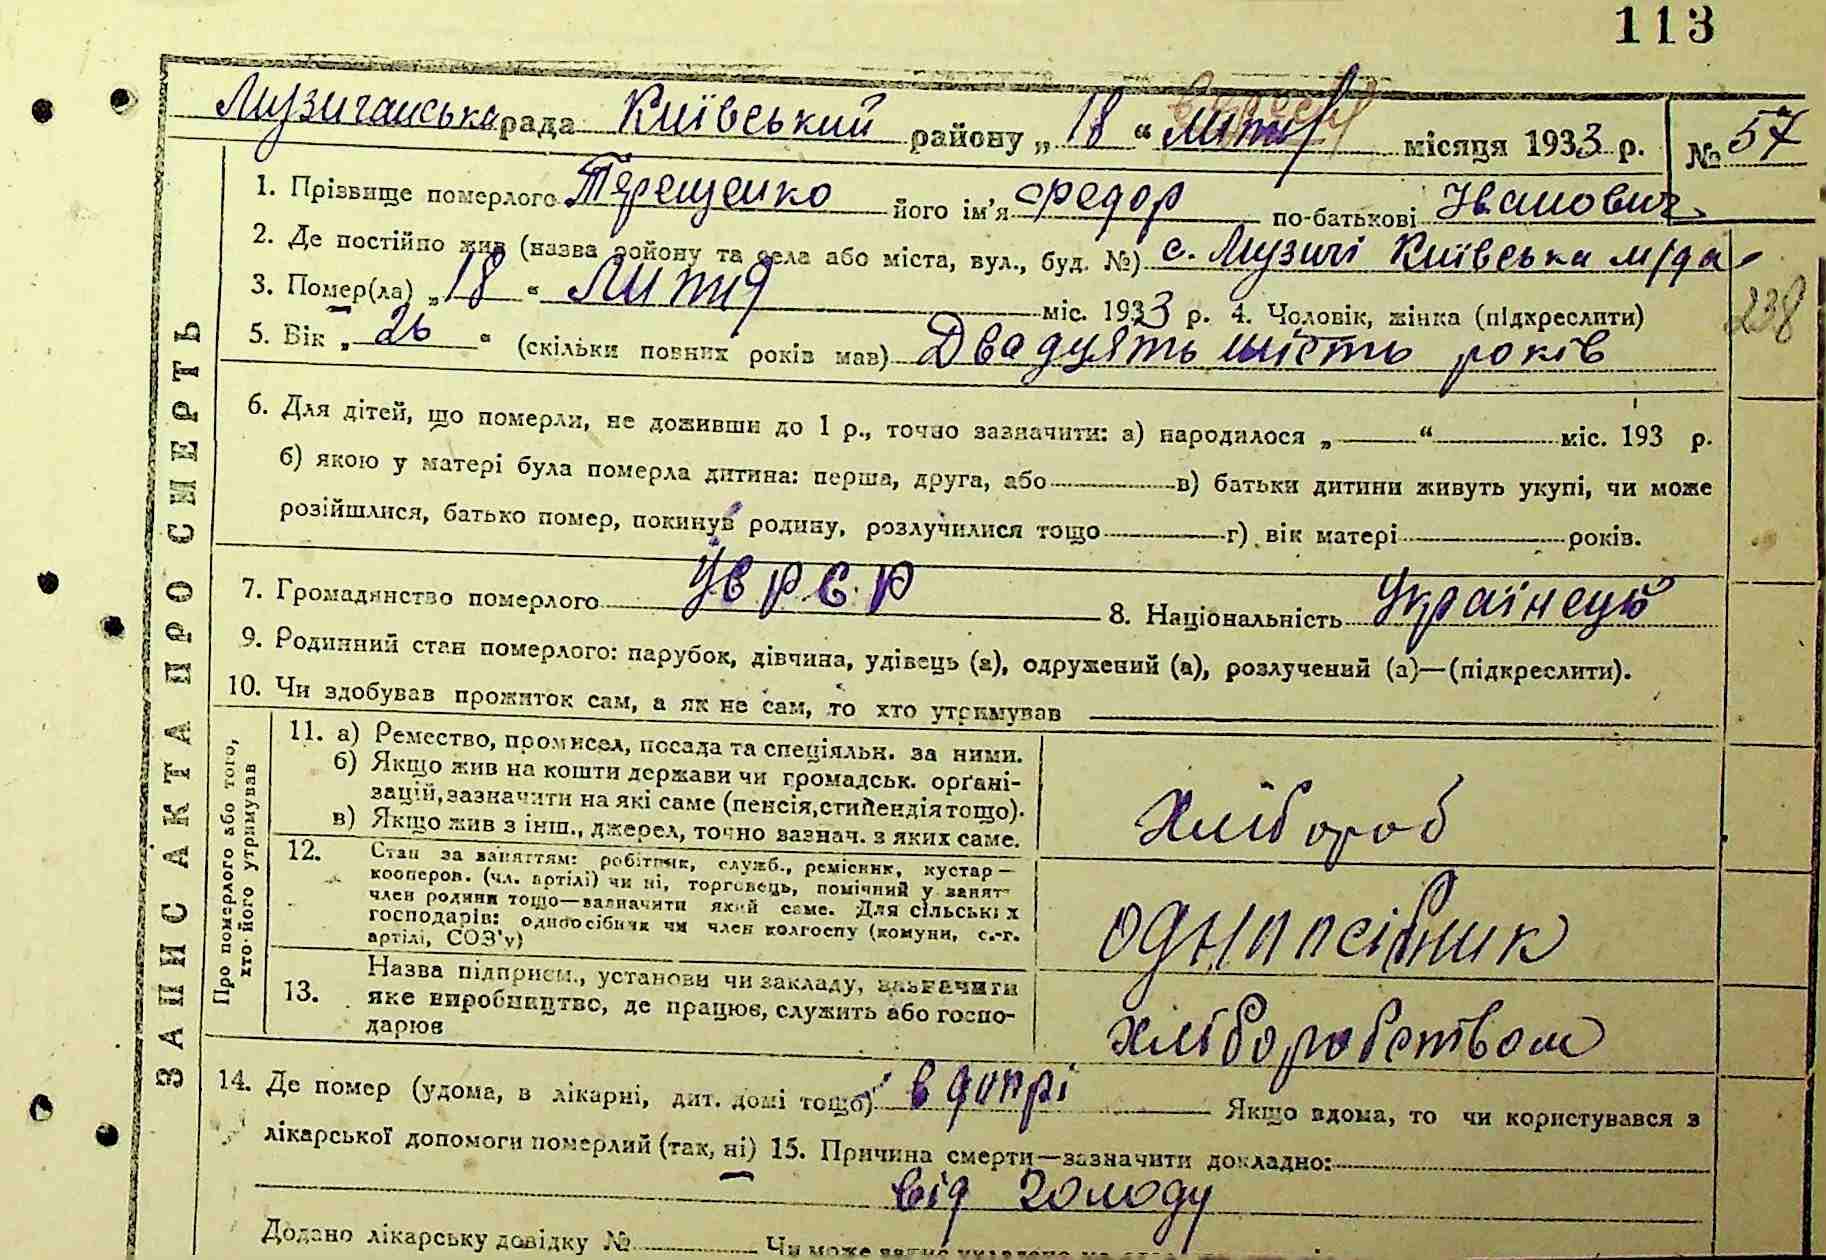 113
Музичанська рада Київський району „ 18 “ місяця 1933 р. № 57
1. Прізвище померлого Терещенко його ім’я Федор по-батькові Іванович
2. Де постійно жив (назва району та села або міста, вул., буд. №) с. Музичі Київська м/рада
238
3. Помер(ла) „ 18 “ Лютня міс. 1933 р. 4. Чоловік, жінка (підкреслити)
5. Вік „ 26 “ (скільки повних років мав) Двадцять шість років
6. Для дітей, що померли, не доживши до 1 р., точно зазначити: а) народилося „ “ міс. 193 р.
б) якою у матері була померла дитина: перша, друга, або в) батьки дитини живуть укупі, чи може
розійшлися, батько помер, покинув родину, розлучилися тощо г) вік матері років.
7. Громадянство померлого УСРР 8. Національність Українець
9. Родинний стан померлого: парубок, дівчина, удівець (а), одружений (а), розлучений (а)—(підкреслити).
10. Чи здобував прожиток сам, а як не сам, то хто утримував
ЗАПИС АКТА ПРО СМЕРТЬ
Про померлого або того,
хто його утримував
11. а) Ремество, промисел, посада та спеціяльн. за ними.
б) Якщо жив на кошти держави чи громадськ. орґані-
зацій, зазначити на які саме (пенсія, стипендія тощо).
в) Якщо жив з інш., джерел, точно зазнач. з яких саме.
Хлібороб
12. Стан за заняттям: робітник, служб., ремісник, кустар—
кооперов. (чл. артілі) чи ні, торговець, помічний у занят-
член родини тощо—зазначити який саме. Для сільських
господарів: одноосібник чи член колгоспу (комуни, с.-г.
артілі, СОЗ’у)
одноосібник
13. Назва підприєм., установи чи закладу, зазначити
яке виробництво, де працює, служить або госпо-
дарює
хліборобством
14. Де помер (удома, в лікарні, дит. домі тощо) в допрі Якщо вдома, то чи користувався з
лікарської допомоги померлий (так, ні) 15. Причина смерти—зазначити докладно:
від голоду
Додано лікарську довідку №